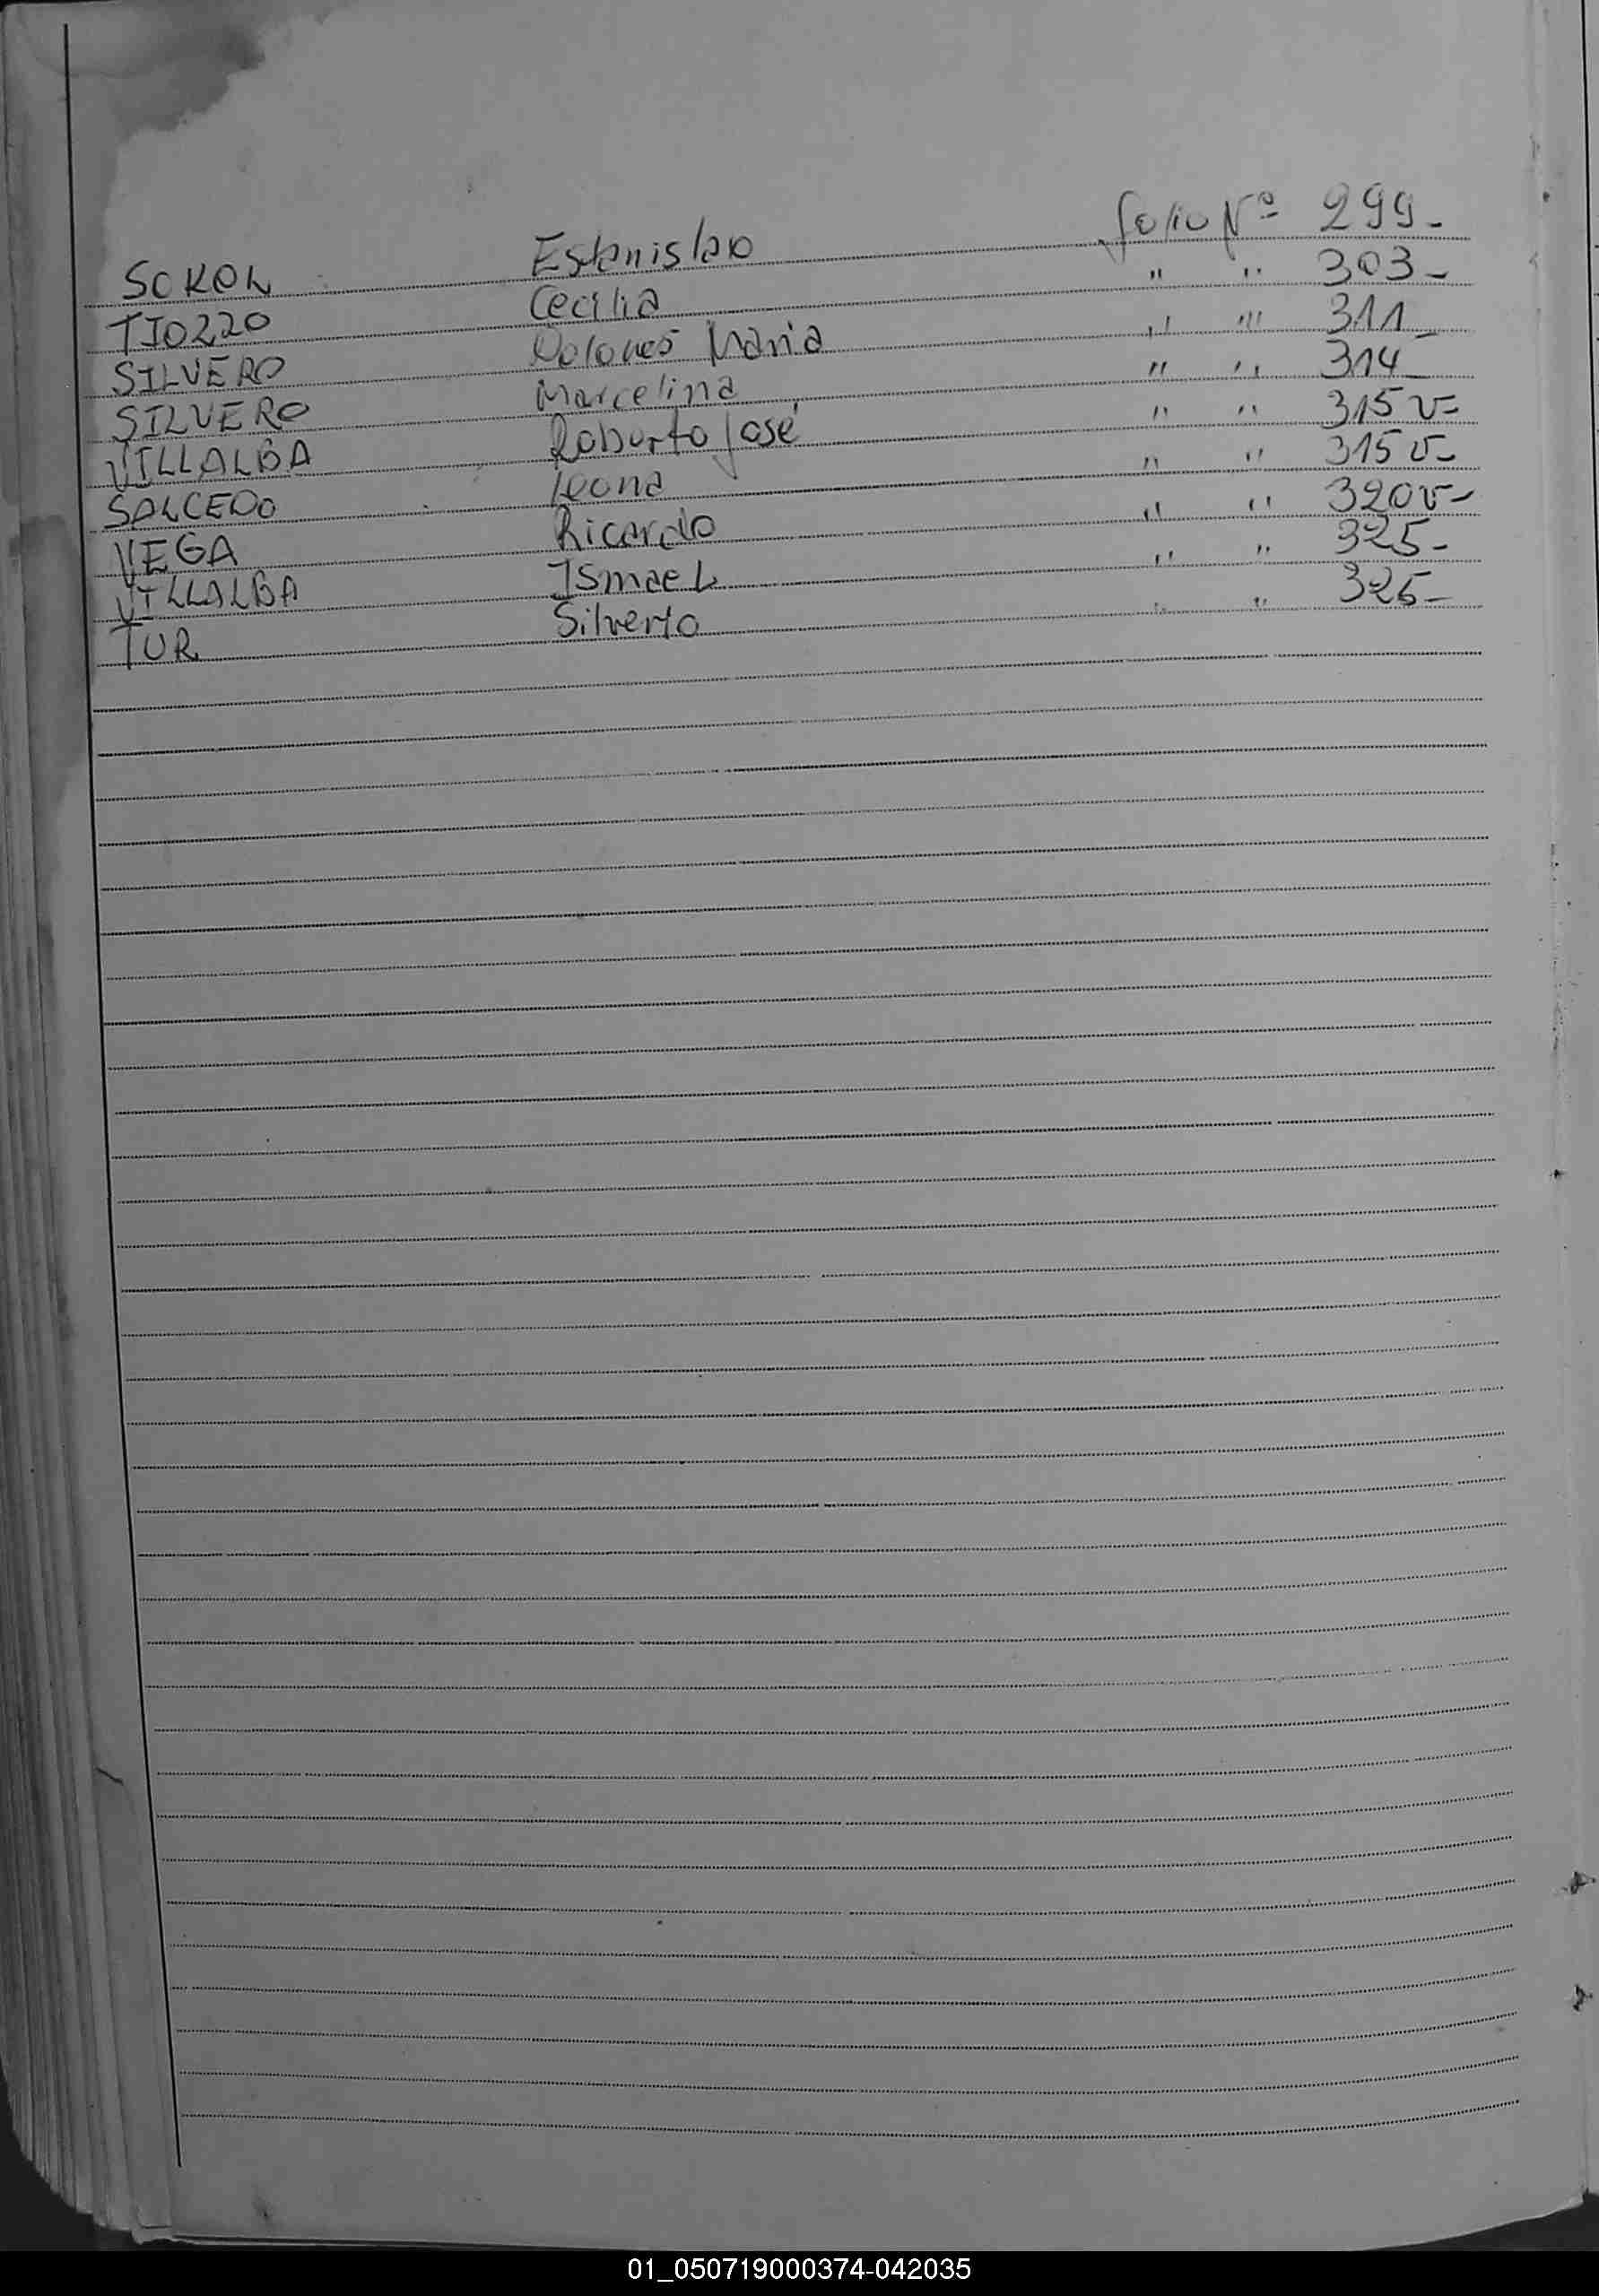 SOKOL Estanislao folio Nº 299-
TIOZZO Cecilia " " 303-
SILVERO Dolores Maria " " 311-
SILVERO Marcelina " " 314-
VILLALBA Roberto José " " 315 v-
SALCEDO Leona " " 315 v-
VEGA Ricardo " " 320 v-
VILLALBA Ismael " " 325-
TUR Silverto " " 326-
01_050719000374-042035